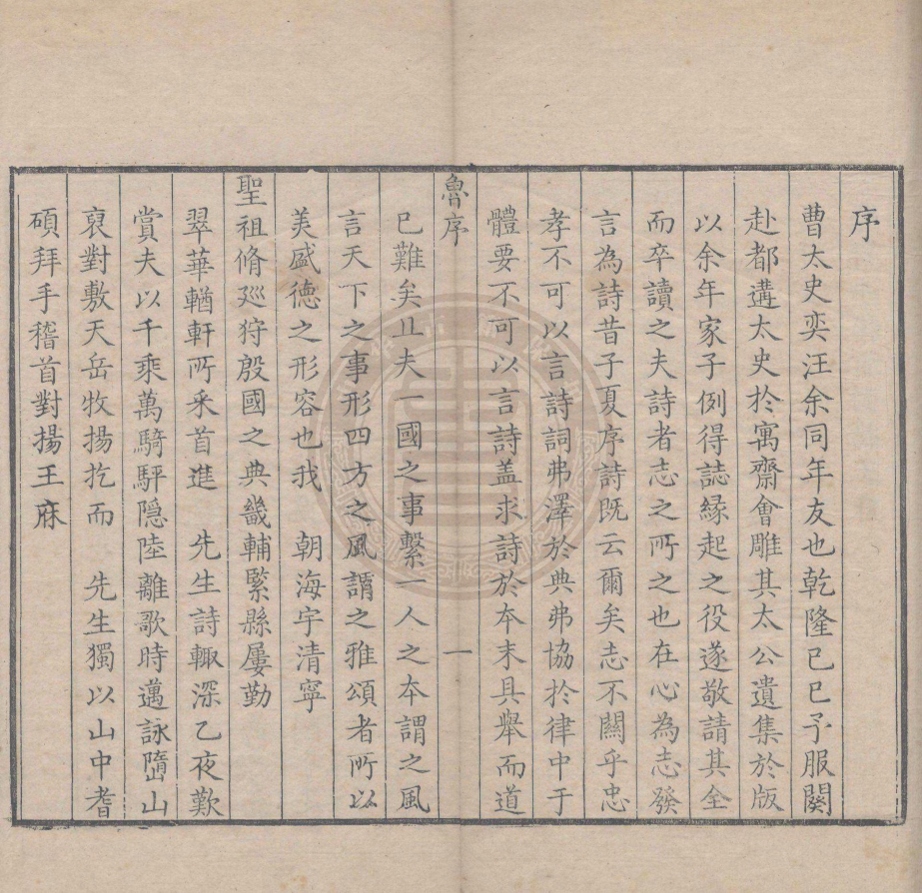 序
曹太史奕汪余同年友也乾隆己巳予服闋
赴都遘太史於寓齋會雕其太公遺集於版
以余年家子例得誌縁起之役遂敬請其全
而卒讀之夫詩者志之所之也在心為志發
言為詩昔子夏序詩既云爾矣志不關乎忠
孝不可以言詩詞弗澤於典弗協於律中于
體要不可以言詩盖求詩於本末具舉而道
魯序
一
已難矣且夫一國之事繫一人之本謂之風
言天下之事形四方之風謂之雅頌者所以
美盛德之形容也我 朝海宇清寧
聖祖脩廵狩殷國之典畿輔緊縣屢勤
翠華輶軒所采首進 先生詩輙深乙夜歎
賞夫以千乘萬騎駍隠陸離歌時邁詠嶞山
裒對敷天岳牧揚扢而 先生獨以山中耆
碩拜手稽首對揚王庥